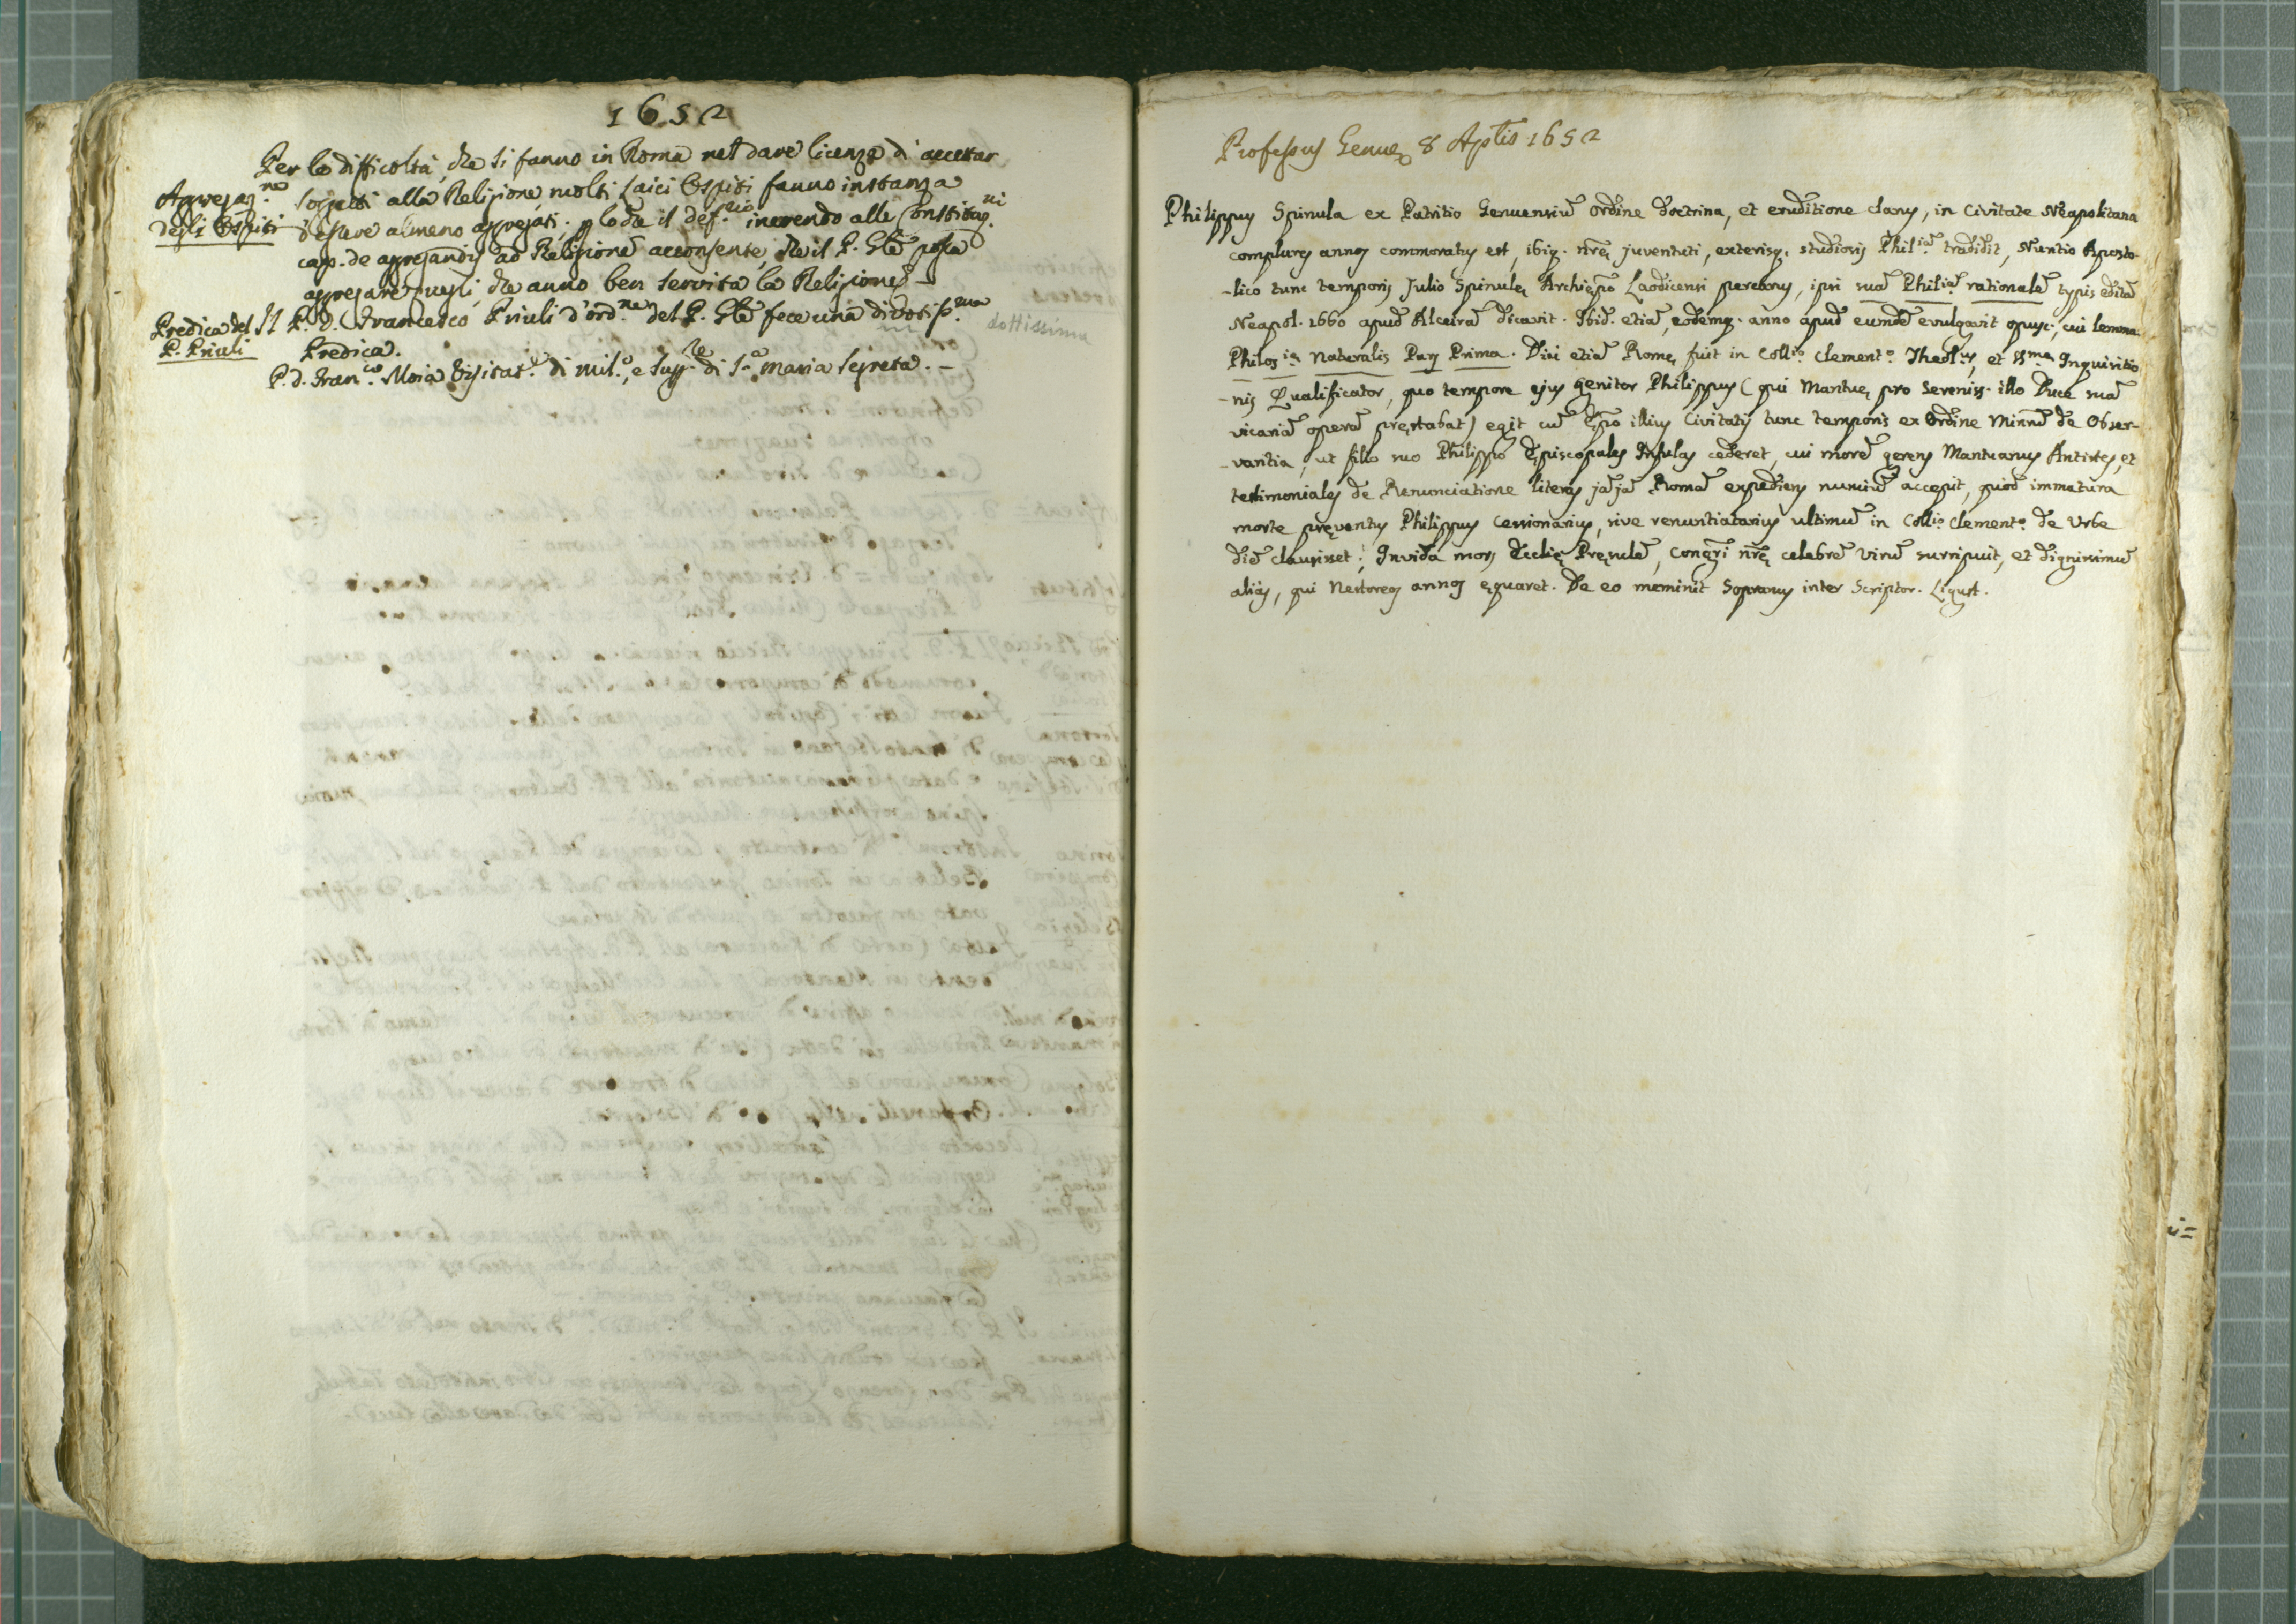 1652
Per le difficoltà, che si fanno in Roma nel dare licenza di accetar
Aggregaz.ne
sogetti alla Religione, molti laici Ospiti fanno instanza
degli Ospiti
d'essere almeno aggregati; p lo che il def.rio inerendo alle Constituz.ni
cap. de aggregandis ad Religionē acconsente, che il P. Gñle possa
aggregare quegli, che anno ben servita la Religione. –
Predica del
Il P. D. Francesco Priuli d'ord.ne del P. Gñle fece una divotiss.ma dottissima
P. Priuli
Predica.
P. d. Fran.co Moia Visitat.e di Mil.o, e Sup.re di S.a Maria Segreta. –
Professus Genuę 8 Aplis 1652
Philippus Spinula ex Patritio Genuensiū Ordine doctrina, et eruditione clarus, in Civitate Neapolitana
complures annos commoratus est, ibiq. nrę juventuti, exterisq. studiosis Phil.iā tradidit, Nuntio Aposto-
-lico tunc temporis Julio Spinulę Archiepo Laodicensi percarus, ipsi suā Phil.iā rationalē typis editā
Neapol. 1660 apud Alceirā dicavit. Ibid. etiā, eodemq. anno apud eumdē evulgavit opusc., cui lemma
Philos.ia Naturalis Pars Prima. Diu etiā Romę fuit in Coll.o Clement.o Theol.us, et SS.ma Inquisitio
-nis Qualificator, quo tempore ejus genitor Philippus (qui Mantuę pro Sereniss. illo Duce suā
vicariā operā pręstabat) egit cū Epo illius Civitatis tunc temporis ex Ordine Minnū de Obser-
-vantia, ut filio suo Philippo Episcopales Infulas cederet, cui morē gerens Mantuanus Antistes, et
testimoniales de Renunciatione literas jājā Romā expediens nunciū accepit, quod immatura
morte pręventus Philippus Cessionarius, sive renuntiatarius ultimū in Coll.o Clement.o de Urbe
diē clausisset; Invida mors Ecclię Pręsulē, Congrī nrę celebrē virū surripuit, et dignissimū
alias, qui Nestoreos annos ęquaret. De eo meminit Sopranus inter Scriptor. Ligust.